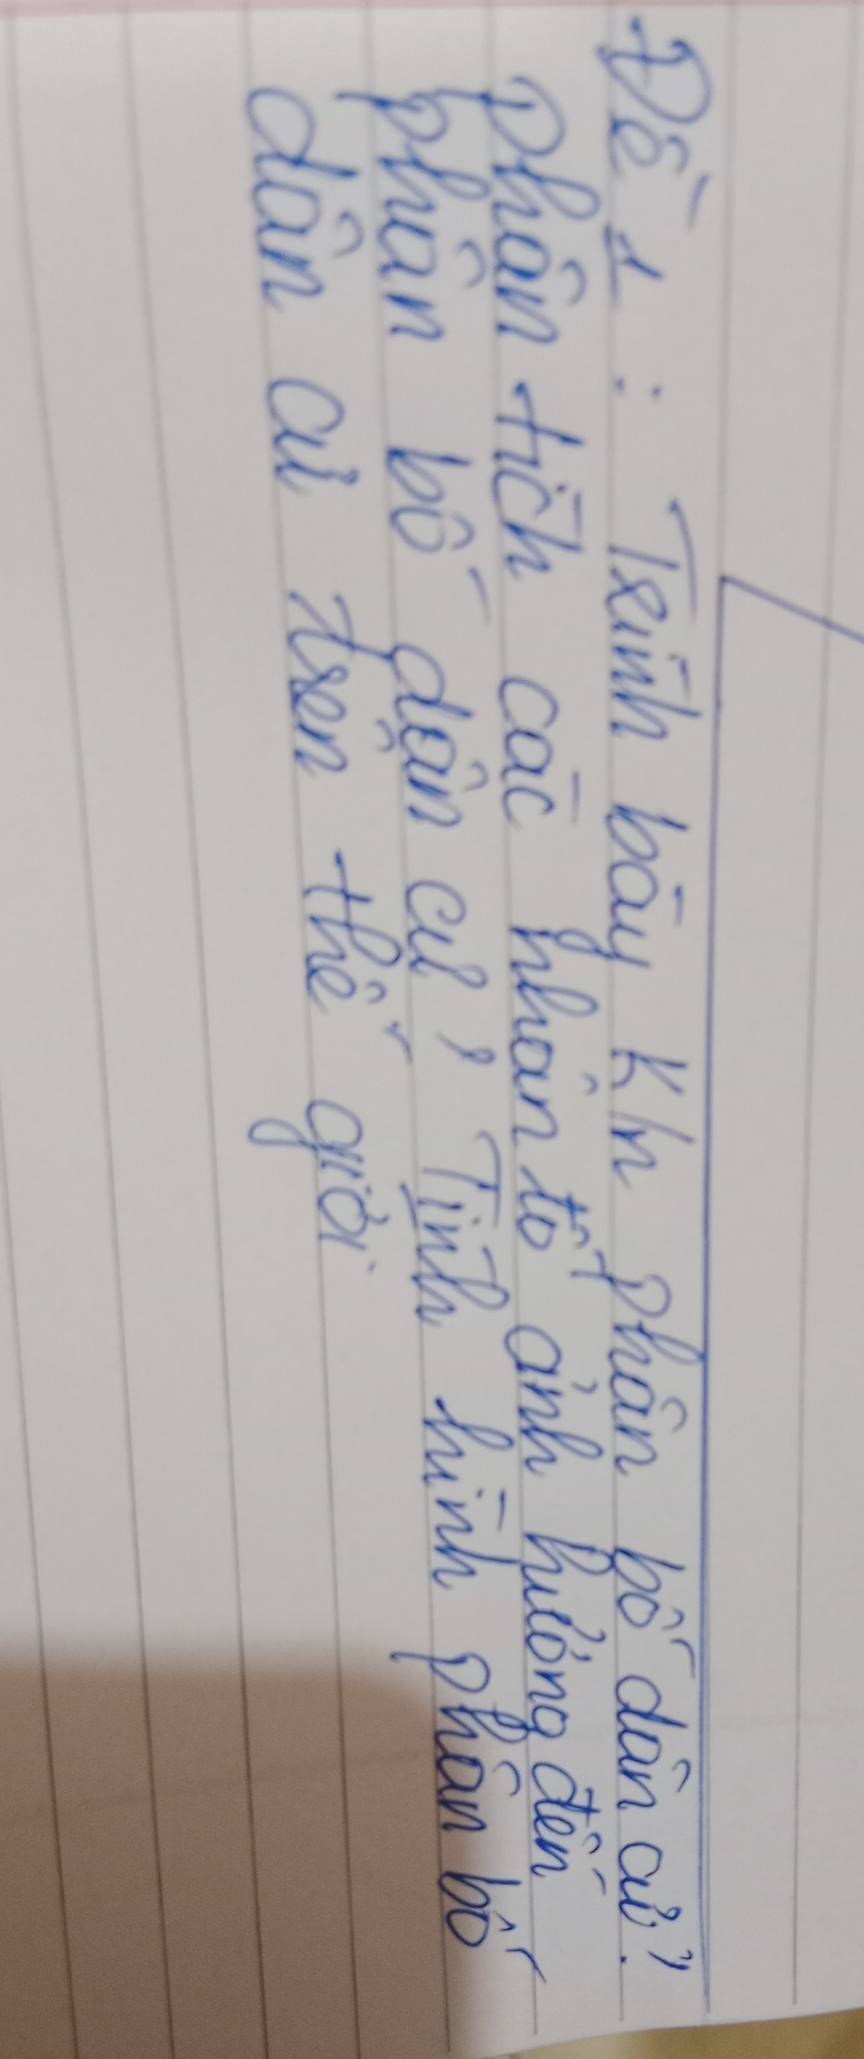 Đề 1 : Trình bày Kn phân bố dân cư?
phân tích các nhân tố ảnh hưởng đến
phân bố dân cư? Tình hình phân bố
dân cư trên thế giới